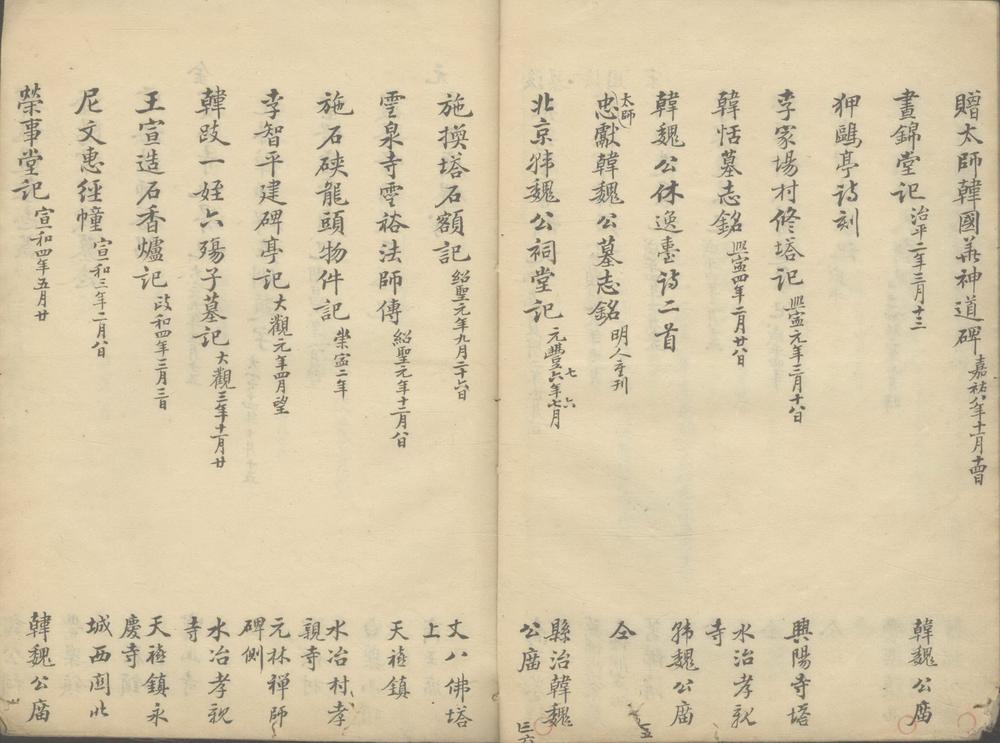 贈太師韓國華神道碑嘉祐八年十一月十四日
晝錦堂記治平二年三月十三 韓魏公庿
狎鷗亭詩刻
李家場村修塔記熙寧元年三月十八日 興陽寺塔
韓恬墓志銘熙寧四年二月廿八日 水冶孝親寺
韓魏公休逸臺詩二首 韩魏公庿
太師
忠獻韓魏公墓志銘明人重刊 仝
北京韩魏公祠堂記元豐六年七月 縣治韓魏公庿
七 六
施換塔石額記紹聖元年九月二十六日 丈八佛塔上
雲泉寺雲裕法師傳紹聖元年十二月八日 天禧鎮
施石硤龍頭物件記崇寧二年 水冶村孝親寺
李智平建碑亭記大觀元年四月望 元林禅師碑側
韓跂一姪六殤子墓記大觀三年十一月廿 水冶孝親寺
王宣造石香爐記政和四年三月三日 天禧鎮永慶寺
尼文惠經幢宣和三年二月八日 城西閻北
榮事堂記宣和四年五月廿 韓魏公庿